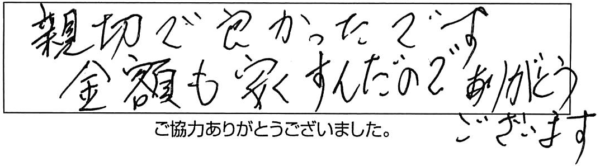 親切で良かったです
金額も安くすんだので ありがとう
ございます
ご協力ありがとうございました。